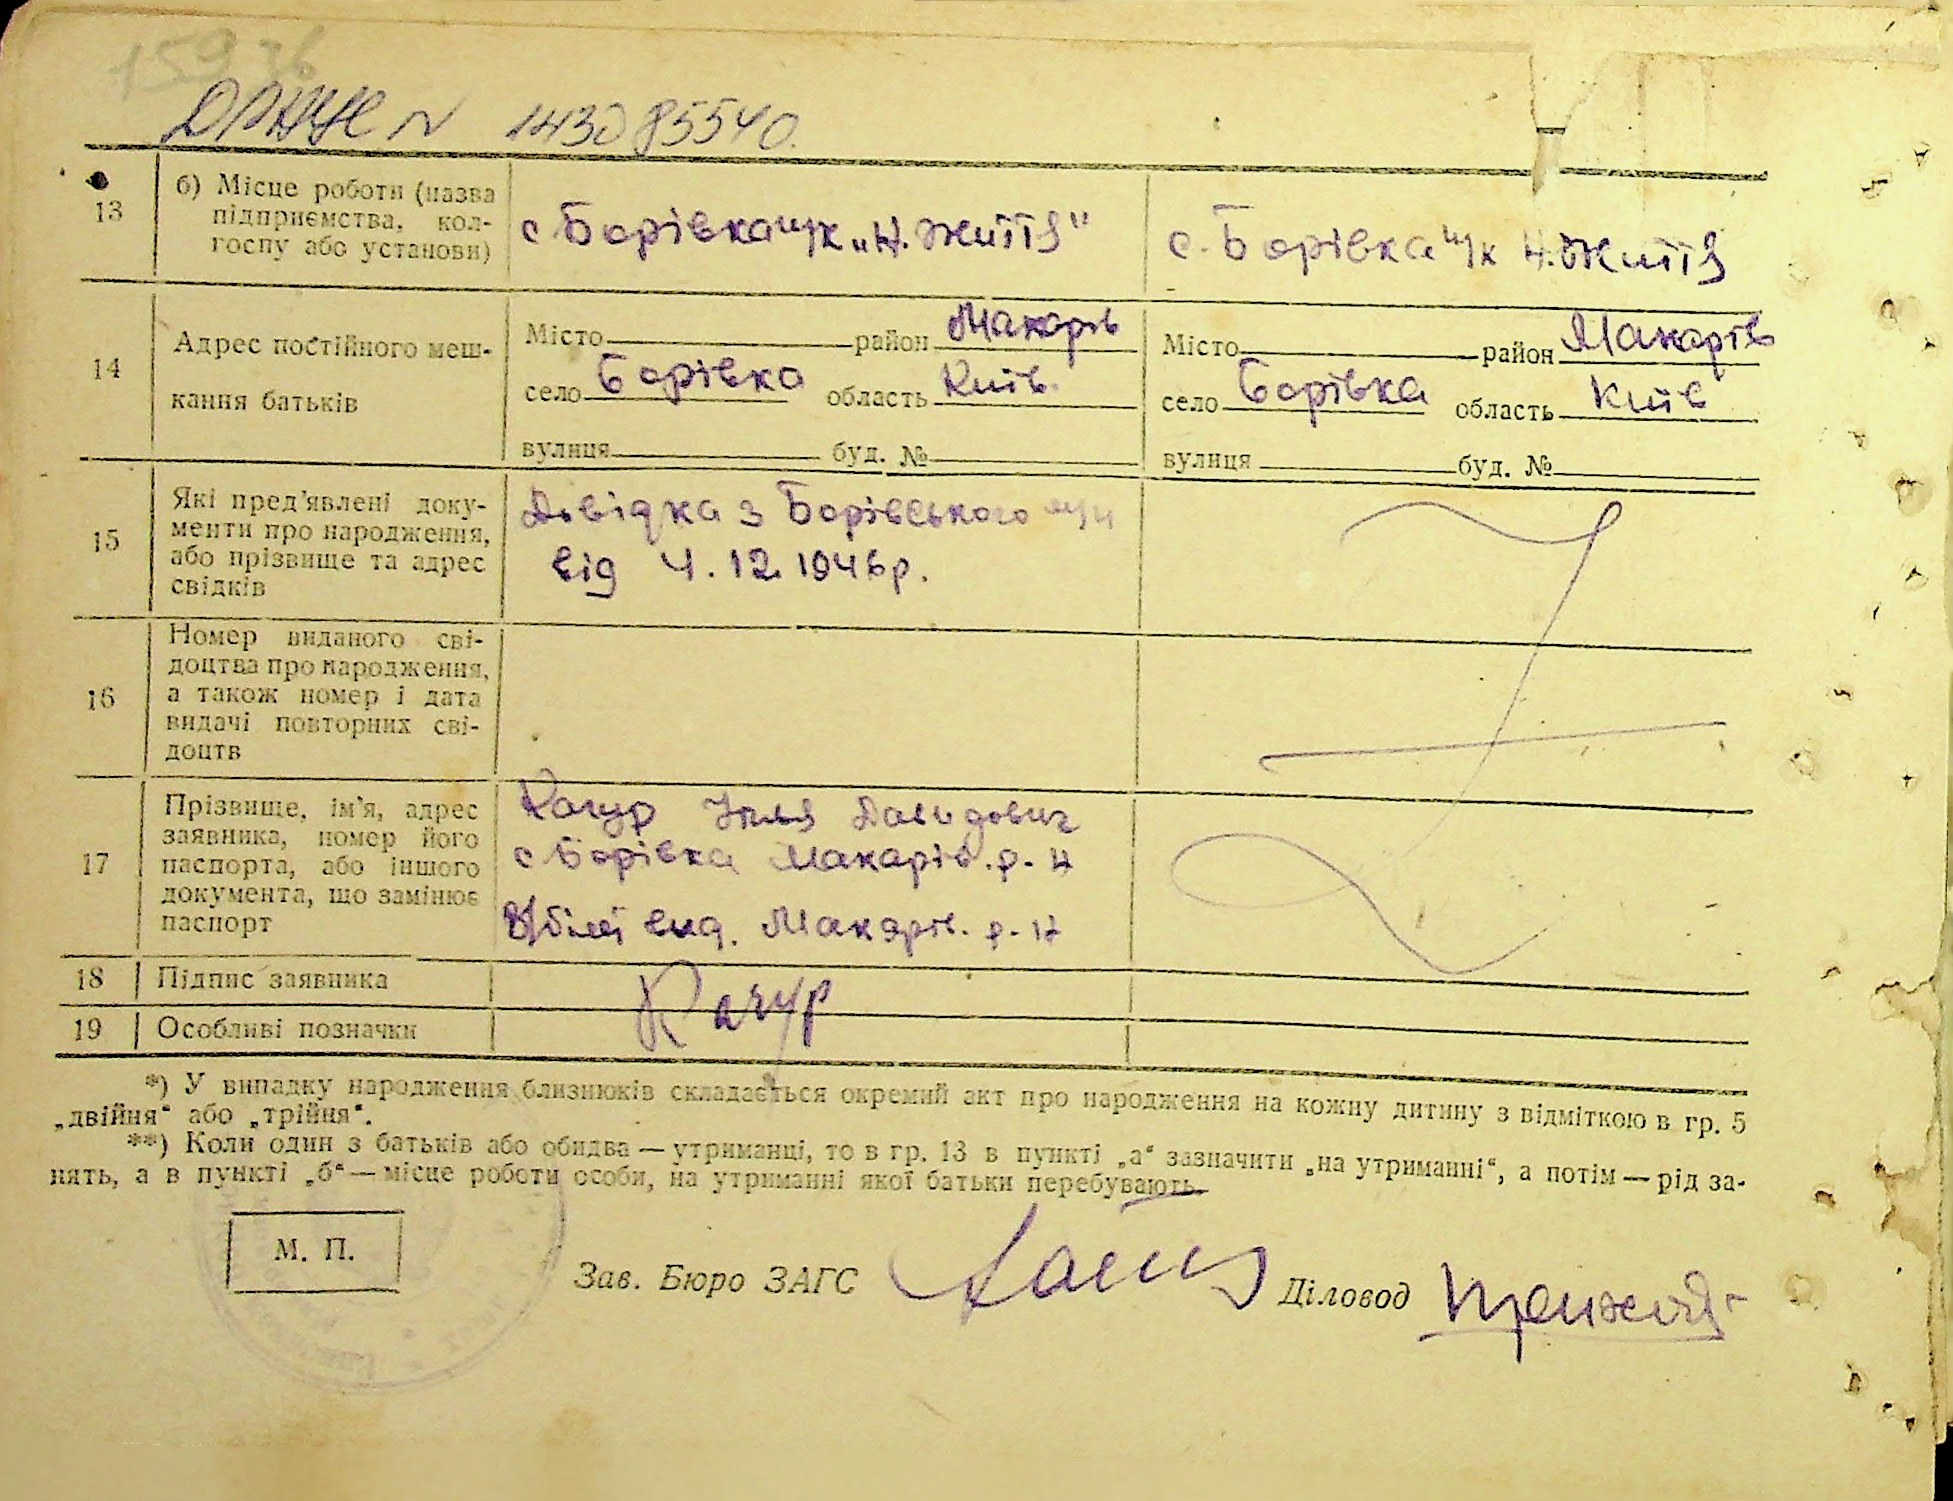 15936
ДРАЦС N 1430 85540.
13
б) Місце роботи (назва
підприємства, кол-
госпу або установи)
с. Борівка ч/к „Н. Життя"
с. Борівка ч/к Н. Життя
14
Адрес постійного меш-
кання батьків
Місто район Макарів
село Борівка область Київ.
вулиця буд. №
Місто район Макарів
село Борівка область Київ
вулиця буд. №
15
Які пред'явлені доку-
менти про народження,
або прізвище та адрес
свідків
Довідка з Борівського
від 4.12.1946р.
16
Номер виданого сві-
доцтва про народження,
а також номер і дата
видачі повторних сві-
доцтв
17
Прізвище, ім'я, адрес
заявника, номер його
паспорта, або іншого
документа, що замінює
паспорт
Качур Ілля Давидович
с Борівка Макарів. р-н
В/білет вид. Макарів. р-н
18 Підпис заявника
Качур
19 Особливі позначки
*) У випадку народження близнюків складається окремий акт про народження на кожну дитину з відміткою в гр. 5
„двійня" або „трійня".
**) Коли один з батьків або обидва — утриманці, то в гр. 13 в пункті „а" зазначити „на утриманні", а потім — рід за-
нять, а в пункті „б" — місце роботи особи, на утриманні якої батьки перебувають.
М. П.
Зав. Бюро ЗАГС
Діловод